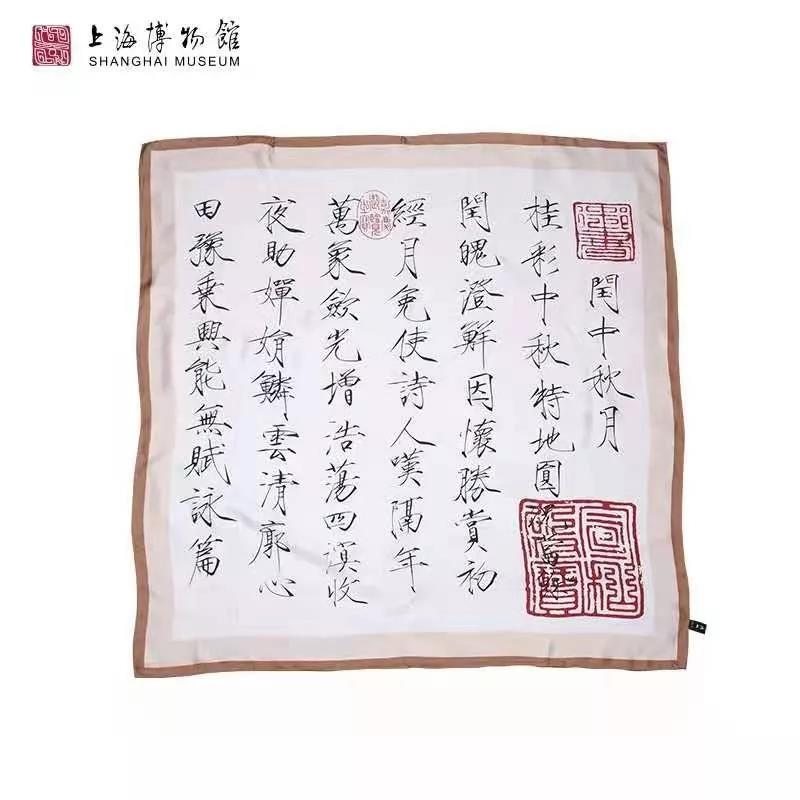 上海博物館
SHANGHAI MUSEUM
御書
閏中秋月
桂彩中秋特地圓
閏魄澄鮮因懷勝賞初
經月免使詩人嘆隔年
萬象斂光增浩蕩四溟收
夜助嬋娟鱗雲清廓心
田豫乘興能無賦詠篇